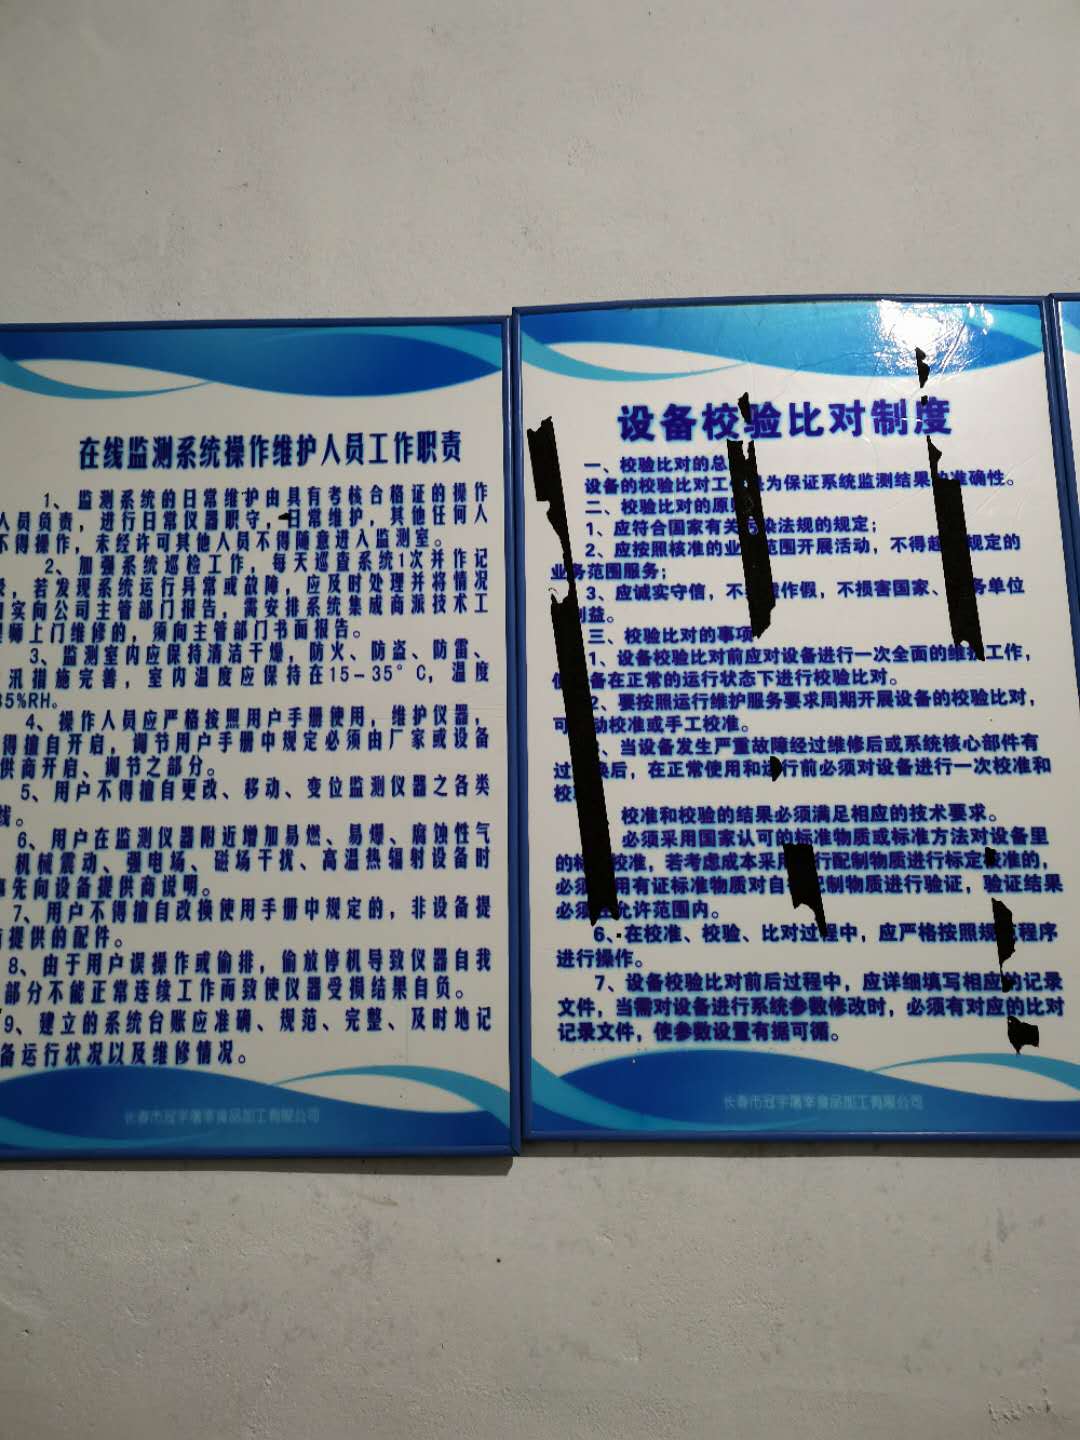 在线监测系统操作维护人员工作职责
1、监测系统的日常维护由具有考核合格证的操作
人员负责，进行日常仪器职守，日常维护，其他任何人
不得操作，未经许可其他人员不得随意进入监测室。
2、加强系统巡检工作，每天巡查系统1次并作记
，若发现系统运行异常或故障，应及时处理并将情况
实向公司主管部门报告，需安排系统集成商派技术工
师上门维修的，须向主管部门书面报告。
3、监测室内应保持清洁干燥，防火、防盗、防雷、
汛措施完善，室内温度应保持在15-35°C，温度
85%RH。
4、操作人员应严格按照用户手册使用，维护仪器，
得擅自开启，调节用户手册中规定必须由厂家或设备
供商开启、调节之部分。
5、用户不得擅自更改、移动、变位监测仪器之各类
线。
6、用户在监测仪器附近增加易燃、易爆、腐蚀性气
机械震动、强电场、磁场干扰、高温热辐射设备时
先向设备提供商说明。
7、用户不得擅自改换使用手册中规定的，非设备提
提供的配件。
8、由于用户误操作或偷排，偷放停机导致仪器自我
部分不能正常连续工作而致使仪器受损结果自负。
9、建立的系统台账应准确、规范、完整、及时地记
备运行状况以及维修情况。
长春市冠宇屠宰食品加工有限公司
设备校验比对制度
一、校验比对的总
设备的校验比对工 为保证系统监测结果 准确性。
二、校验比对的原
1、应符合国家有关 染法规的规定；
2、应按照核准的业 范围开展活动，不得超 规定的
业务范围服务；
3、应诚实守信，不 作假，不损害国家、 务单位
利益。
三、校验比对的事项
1、设备校验比对前应对设备进行一次全面的维护工作，
备在正常的运行状态下进行校验比对。
2、要按照运行维护服务要求周期开展设备的校验比对，
可 动校准或手工校准。
、当设备发生严重故障经过维修后或系统核心部件有
过 换后，在正常使用和运行前必须对设备进行一次校准和
校
校准和校验的结果必须满足相应的技术要求。
必须采用国家认可的标准物质或标准方法对设备里
的标 校准，若考虑成本采用 行配制物质进行标定校准的，
必须 用有证标准物质对自 配制物质进行验证，验证结果
必须在允许范围内。
6、在校准、校验、比对过程中，应严格按照规范程序
进行操作。
7、设备校验比对前后过程中，应详细填写相应的记录
文件，当需对设备进行系统参数修改时，必须有对应的比对
记录文件，使参数设置有据可循。
长春市冠宇屠宰食品加工有限公司